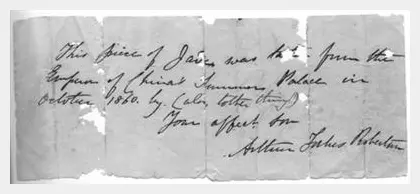 This piece of Jade was from the
Emperor of China's Summer Palace in
October 1860. by (also other things)
Your affect. son
Arthur Forbes Robertson